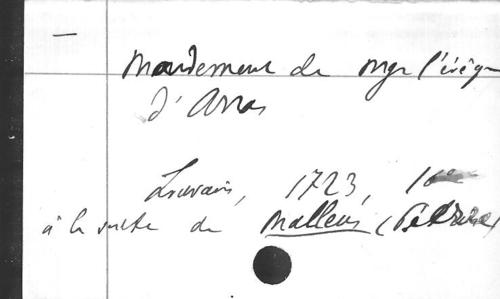 —
Mandement de Mgr l'évêque
d'Arras
Louvain, 1723,
à la suite de Malleus (